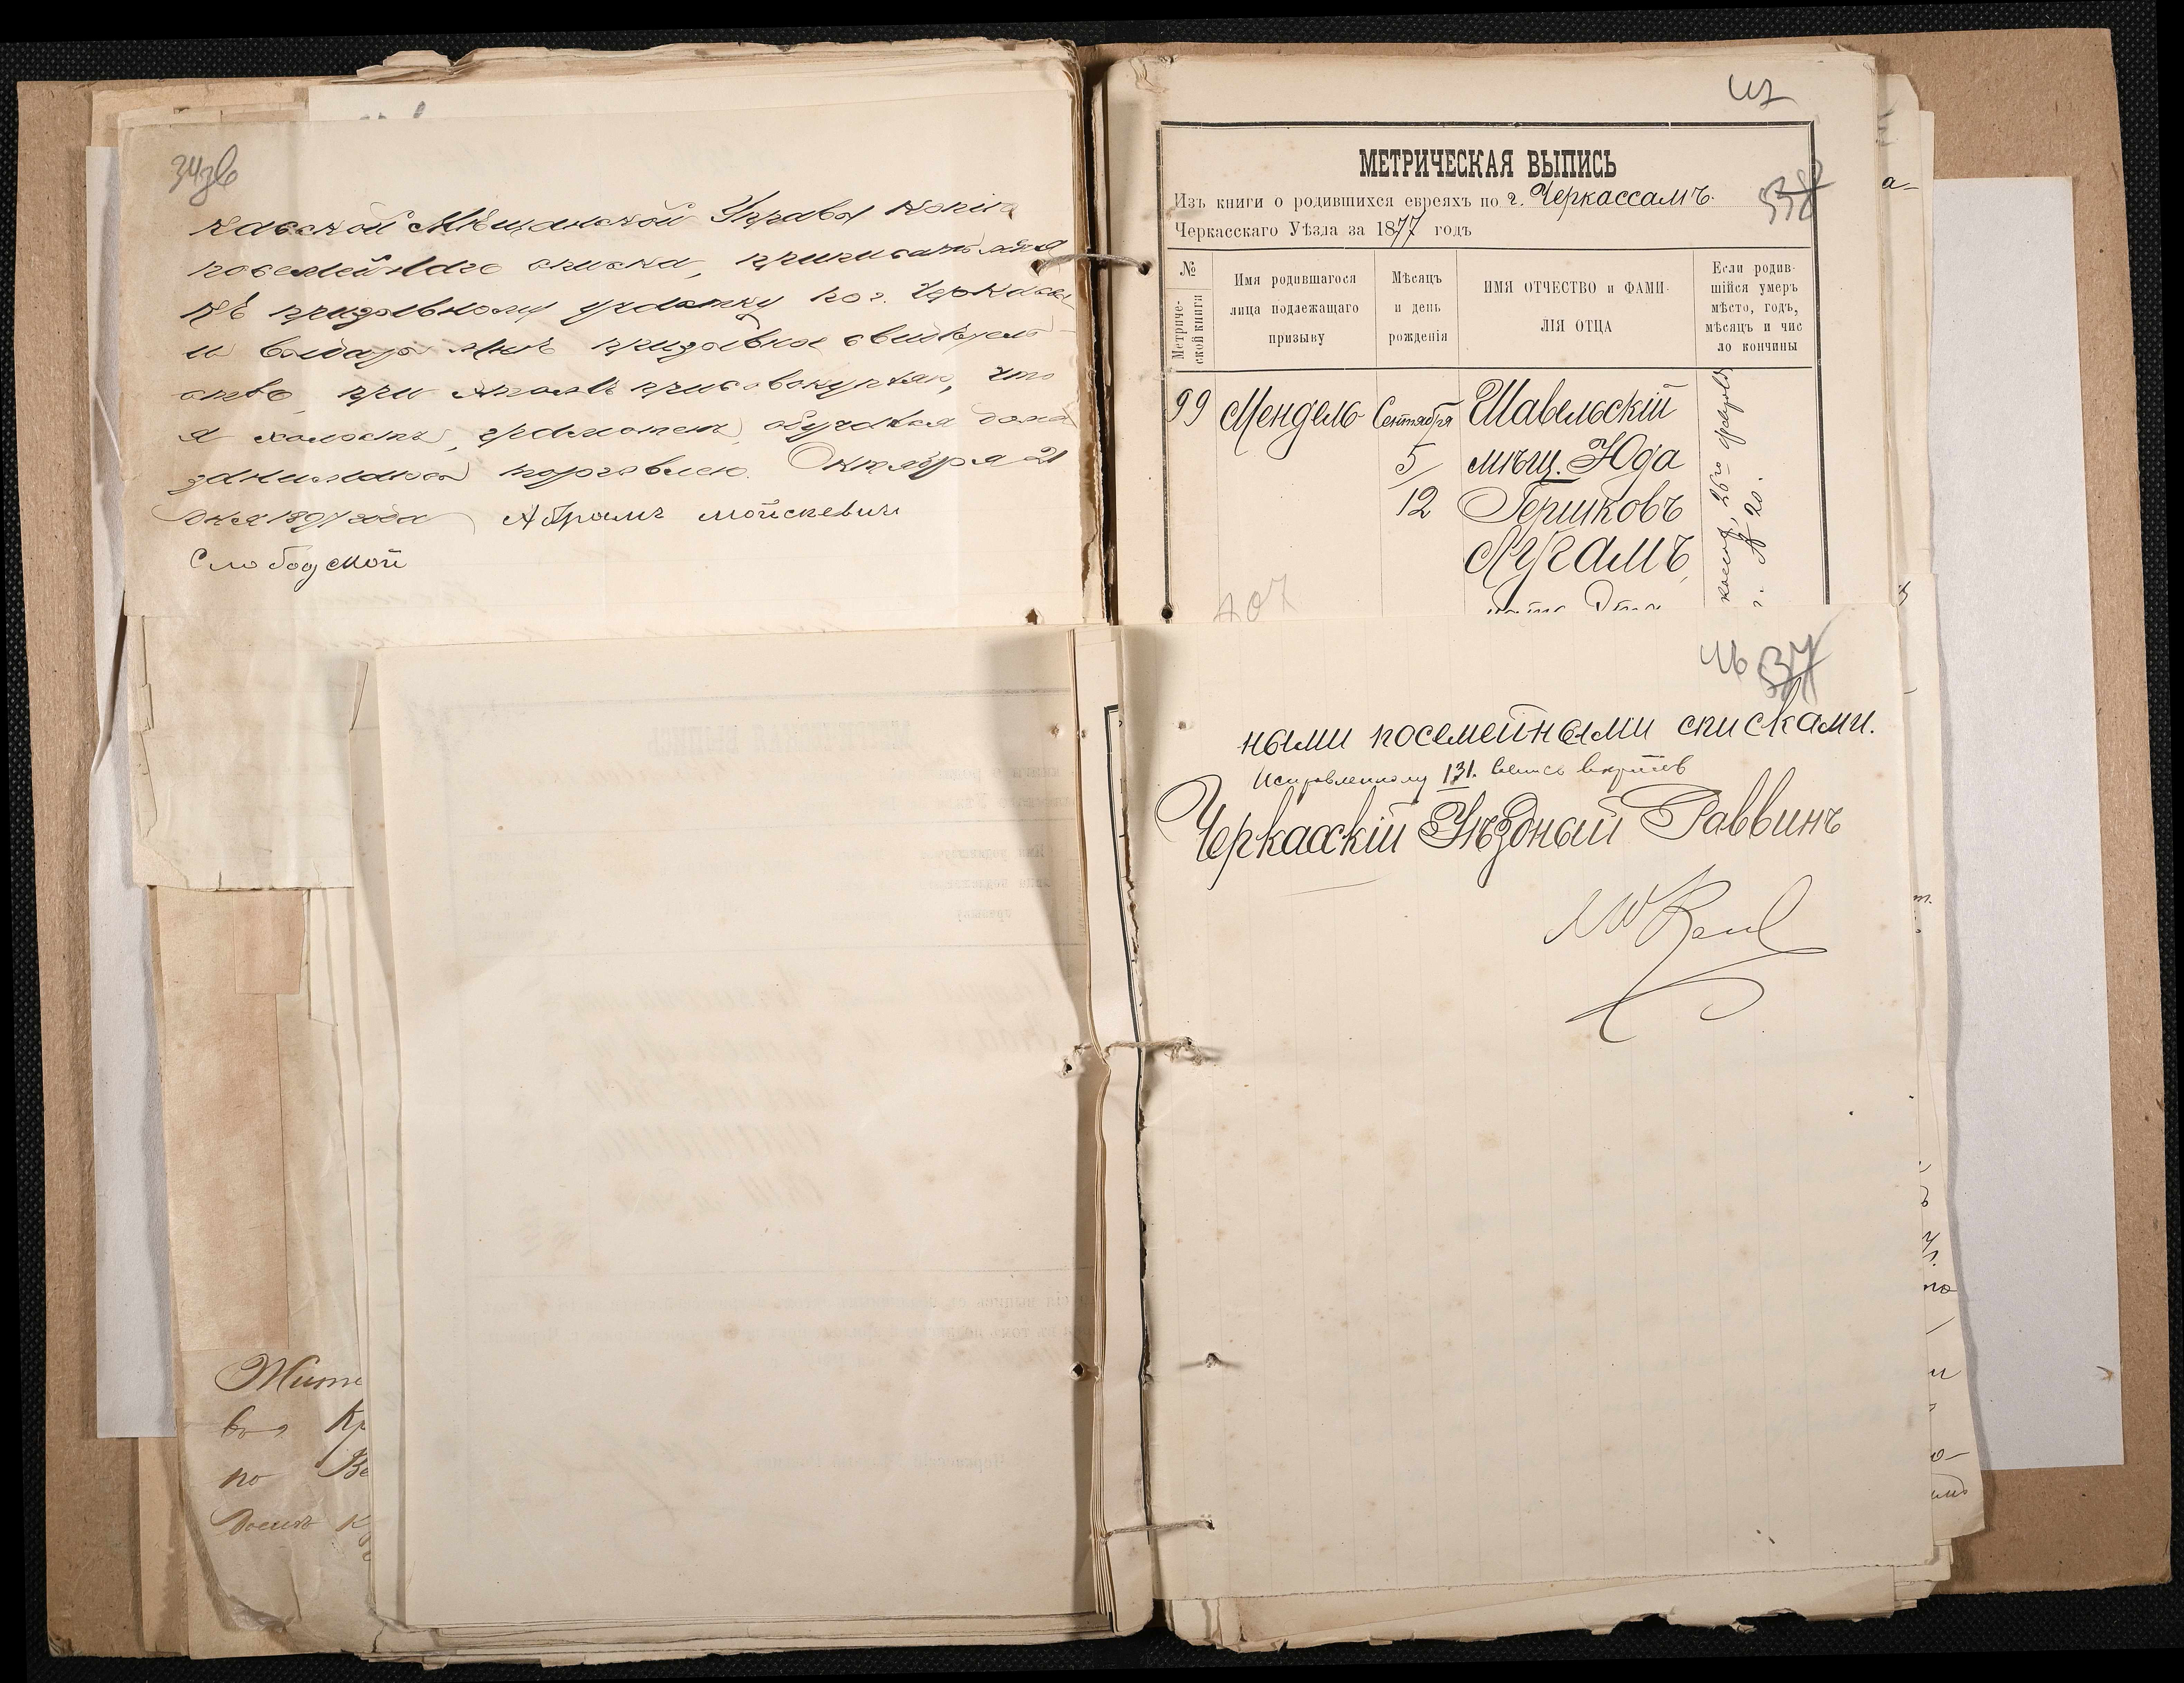 34 об
касской Мѣщанской Управы копіи
посемейнаго списка, приписать меня
къ призывному участку по г. Черкассы
и выдать мнѣ призывное свидѣтель-
ство, при этомъ присовокупляю, что
я холостъ, грамотен, обучался дома
занимаюсь торговлею. Октября 21
дня 1897 года Абрамъ Мойскевич
Слободской
МЕТРИЧЕСКАЯ ВЫПИСЬ
Изъ книги о родившихся евреяхъ по г. Черкассамъ.
Черкасскаго Уѣзда за 1877 годъ
№ Метриче-ской книги
Имя родившагося лица подлежащаго призыву
Мѣсяцъ и день рожденія
ИМЯ ОТЧЕСТВО и ФАМИ-ЛІЯ ОТЦА
Если родив-шійся умеръ мѣсто, годъ, мѣсяцъ и чис ло кончины
99 Мендель Сентября Шавельскій
5/ мѣщ. Юда
12 Гершковъ
26го февраля
г. № 20.
407
46 37
ными посемейными списками.
Исправленному 131. вѣрить
Черкасскій Уѣздный Раввинъ
Жите
Кр
по Ве